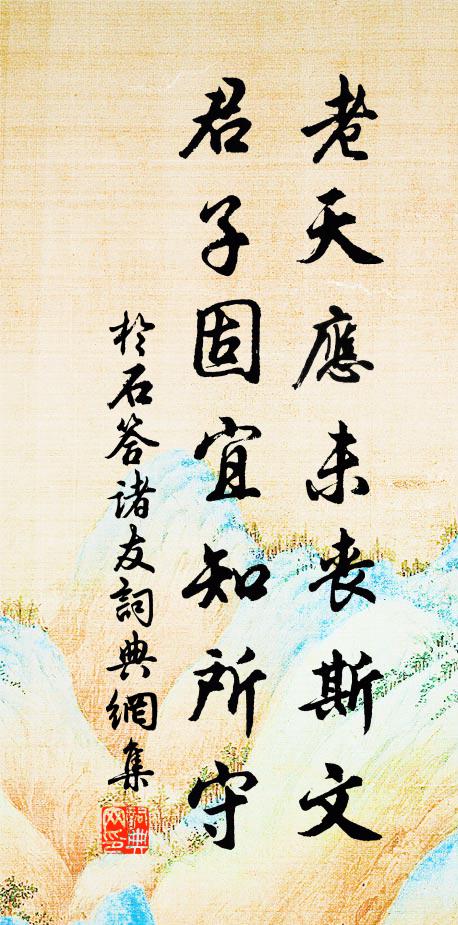 老天應未喪斯文
君子固宜知所守
於石答諸友詞典網集
詞典网印